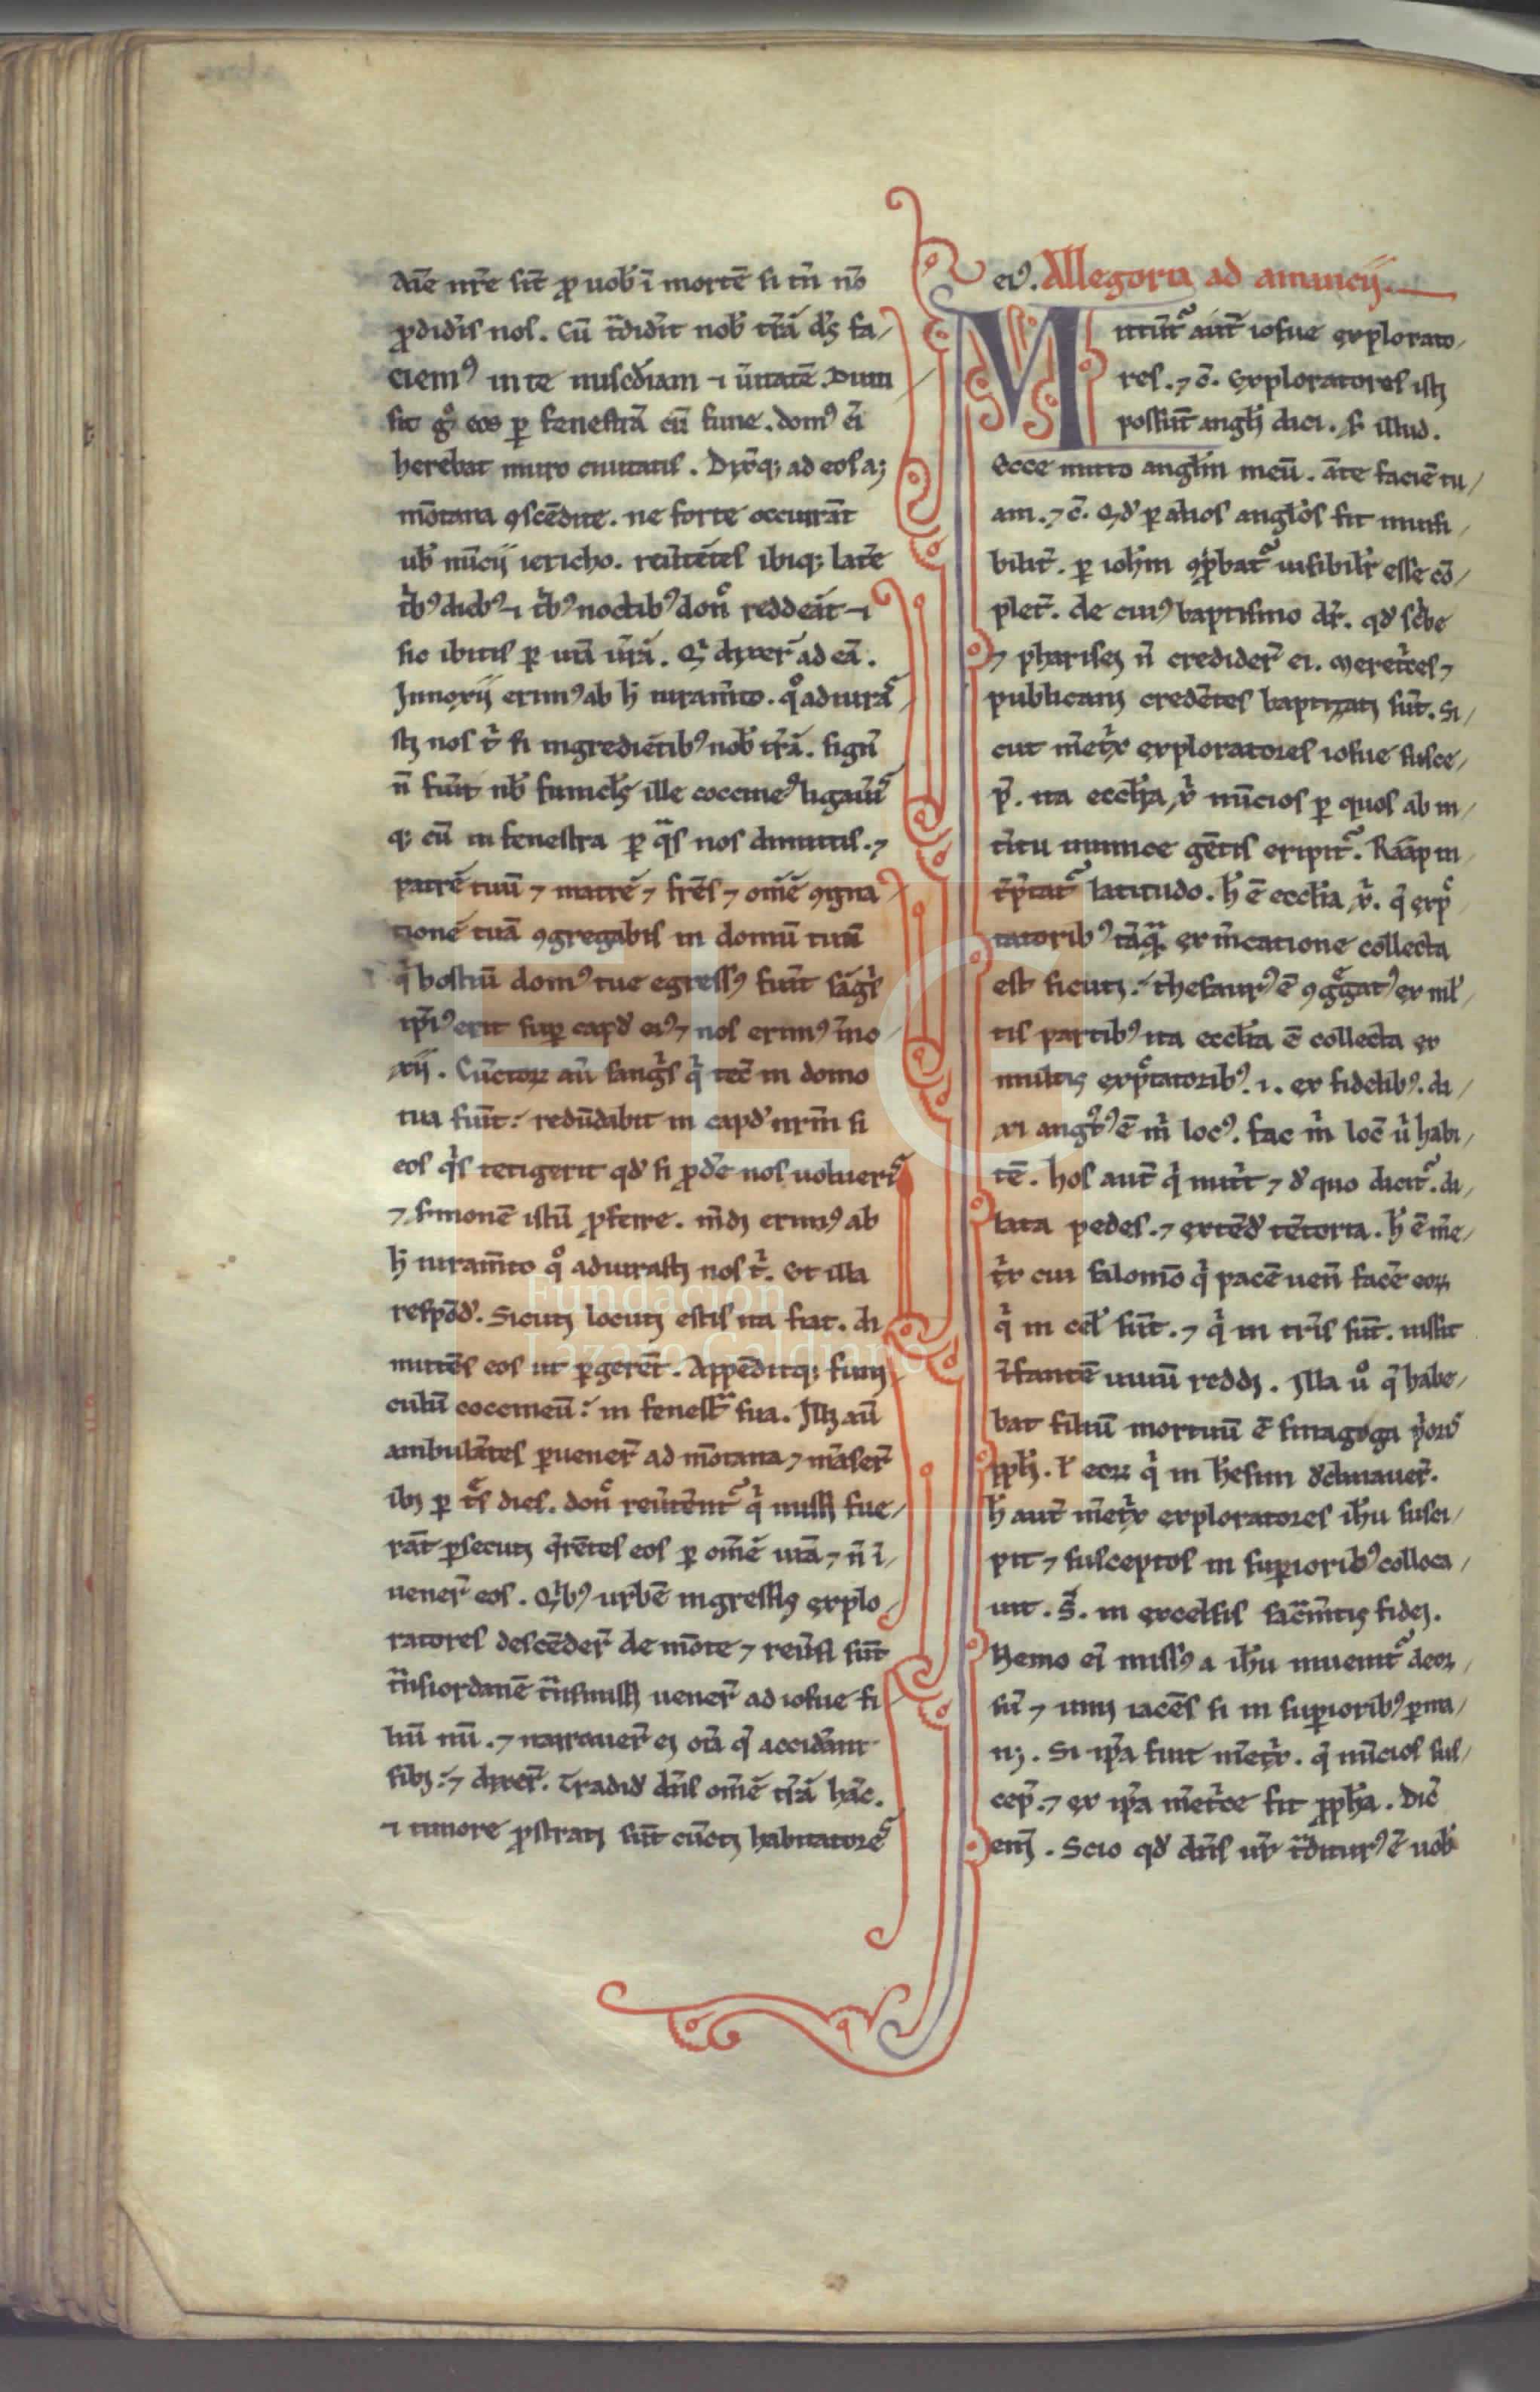 Aīe nr̄e sīt ꝓ uob̄ ī mortē si tn̄ nō
ꝓdid̓is nos. Cū t̄did̓it nob̄ t̄rā dn̄s fa/
ciemꝰ in te mise͛diam ⁊ ūitatē. Dimi
sit ḡ eos ꝑ fenestrā cū fune. domꝰ ei̅
herebat muro ciuitatis. Dix̄qꝫ ad eos aꝫ
mōtana ꝯscēdite. ne forte occurrāt
ub̄ nūcij iericho. reūtētes ibiqꝫ latē
t̓bꝰ diebꝰ ⁊ t̓bꝰ noctibꝰ donͦ reddeāt ⁊
sic ibitis ꝑ uiā ur̄ā. Qͥ dixer̄ ad eā.
Innoxij erimꝰ ab h̄ iuram̄to. qͦ adiurā
stꝫ nos t̓ si ingrediētibꝰ nob̄ t̄rā. sign̄
n̄ fuit̄ ub̄ funicl̄s ille coccineꝰ ligau͛is
qꝫ eū in fenestra ꝑ qͣs nos dimittis. ⁊
patrē tuū ⁊ matrē ⁊ fr̄es ⁊ om̄ē ꝯgna
tionē tuā ꝯgregabis in domū tuā
qͥ hostiū domꝰ tue egressꝰ fuit̄ sāgͥs
ip̄iꝰ erit suꝑ capd̓ eiꝰ ⁊ nos erimꝰ īno
xij. Cūctoꝝ aū sangͥs qͥ tec̄ in domo
tua fuīt: redūdabit in capd̓ nrm̄ si
eos qͥs tetigerit qd̓ si ꝓd̓e nos uolueris
⁊ s̓monē istū ꝓferre. m̄dꝫ erimꝰ ab
h̄ iuram̄to qͦ adiurastꝫ nos t̓. Et illa
respōd̓. Sicutꝫ locutꝫ estis ita fiat. di
mittēs eos ut ꝑgerēt. Appēditqꝫ funꝫ
culū coccineū: in fenest̓ sua. Illꝫ aū
ambulātes ꝑuener̄ ad mōtana ⁊ māser̄
ibꝫ ꝑ t̓s dies. donͦ reūtēnt̉ qͥ missꝫ fue/
rāt ꝑsecutꝫ q̄rētes eos ꝑ om̄ē uiā ⁊ n̄ ī/
uener̄ eos. Qͥbꝰ urbē ingressis explo/
ratores descēder̄ de mōte ⁊ reūsi sūt
t̄nsiordanē t̄nsmissꝫ uener̄ ad iosue fi
liū nū. ⁊ narrauer̄ eꝫ oīa q̄ accid̓ant
sibꝫ: ⁊ dixer̄. Tradid̓ dn̄s om̄ē t̄rā hāc.
⁊ timore ꝓstratꝫ sūt cūctꝫ habitatores
eiꝰ. Allegoria ad amincij.
Mittit̉ aūt iosue explorato/
res. ⁊ c̄. Exploratores istꝫ
possūt angl̄i dici. s̓ illud.
Ecce mitto angl̄m meū. āte faciē tu/
am. ⁊ c̄. Qd̓ ꝑ alios angl̓os fit inuisi/
bilit̄. ꝑ ioh̄m ꝯꝓbat̉ uisibilit̄ esse cō/
plet̄. de cuiꝰ baptismo dr̄. qd̓ sc̓be
⁊ pharisei n̄ credider̄ ei. Meret̓ces ⁊
publicani credētes baptizatꝫ sūt. Si/
cut m̄et̓x exploratores iosue susce/
p̄. ita eccl̄ia xͥ nūcios ꝑ quos ab in/
t̓itu inimice gētis eripit̉. Raap in/
t̄p̄tat̉ latitudo. h̄ ē eccl̄ia xͥ. q̄ exp̄
tatoribꝰ tāqͣ ex m̄catione collecta
est sicutꝫ: thesaurꝰ ē ꝯgͣgatꝰ ex ml̓/
tis partibꝰ ita eccl̄ia ē collecta ex
multis exp̄tatoribꝰ. i. ex fidelibꝰ. di/
xi angꝰtꝰ ē m̓ locꝰ. fac m̓ locū u̓ habi/
tē. hos aūt qͥ nut̓t ⁊ d̓ quo dicit̉. di/
lata pedes. ⁊ extēd̓ tētoria. h̄ ē m̄e/
t̓x cui salomō qͥ pacē uen̄ facē eoꝝ
qͥ in cel̓ sūt. ⁊ qͥ in tr̄is sūt. iussit
īfantē uiuū reddꝫ. Illa u̓ q̄ habe/
bat filiū mortuū ē sinagoga
pph̄. ł eoꝝ qͥ in h̄esim d̓clinauer̄.
h̄ aūt m̄et̓x exploratores ih̄u susci/
pit ⁊ susceptos in suꝑioribꝰ colloca/
uit. s̄. in excelsis sac̄m̄tis fidei.
Nemo ei̅ missꝰ a ih̄u inuenit̉ deor/
sū ⁊ imis iacēs si in suꝑioribꝰ ꝑma/
nꝫ. Si ip̄a fuit m̄et̓x. q̄ nūcios sus/
cep̄. ⁊ ex ip̄a m̄et̓ce fit pph̄a. Dic̄
enī. Scio qd̓ dn̄s ur̄ t̄diturꝰ ē uob̄